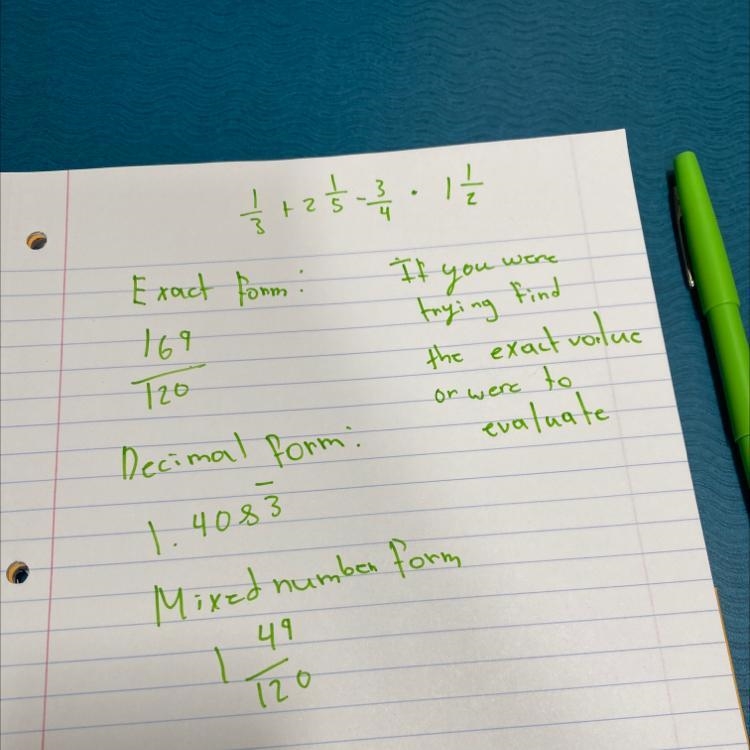 1/3 + 2 1/5 - 3/4 · 1 1/2
Exact form:
169/120
If you were
trying find
the exact value
or were to
evaluate
Decimal form:
1.4083̅
Mixed number form
1 49/120